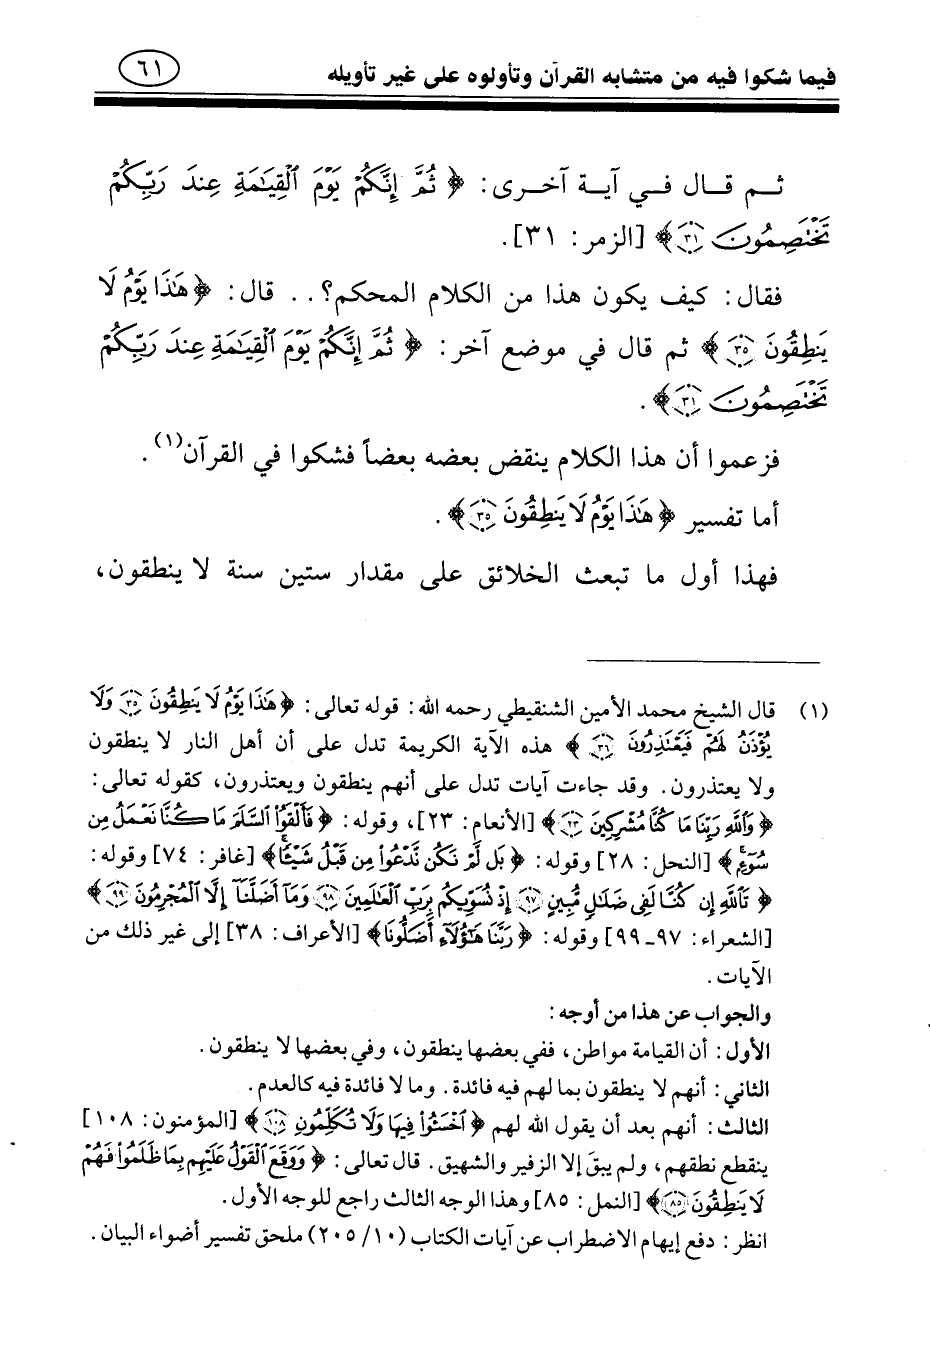 فيما شكوا فيه من متشابه القرآن وتأولوه على غير تأويله ٦١
ثـم قـال فـي آيـة آخـرى: ﴿ ثُمَّ إِنَّكُمْ يَوْمَ الْقِيَٰمَةِ عِندَ رَبِّكُمْ
تَخْتَصِمُونَ ٣١﴾ [الزمر: ٣١].
فقال: كيف يكون هذا من الكلام المحكم؟.. قال: ﴿هَٰذَا يَوْمُ لَا
يَنطِقُونَ ٣٥﴾ ثم قال في موضع آخر: ﴿ثُمَّ إِنَّكُمْ يَوْمَ الْقِيَٰمَةِ عِندَ رَبِّكُمْ
تَخْتَصِمُونَ ٣١﴾.
فزعموا أن هذا الكلام ينقض بعضه بعضاً فشكوا في القرآن(١).
أما تفسير ﴿هَٰذَا يَوْمُ لَا يَنطِقُونَ ٣٥﴾.
فهذا أول ما تبعث الخلائق على مقدار ستين سنة لا ينطقون،
(١) قال الشيخ محمد الأمين الشنقيطي رحمه الله: قوله تعالى: ﴿هَٰذَا يَوْمُ لَا يَنطِقُونَ ٣٥ وَلَا
يُؤْذَنُ لَهُمْ فَيَعْتَذِرُونَ ٣٦﴾ هذه الآية الكريمة تدل على أن أهل النار لا ينطقون
ولا يعتذرون. وقد جاءت آيات تدل على أنهم ينطقون ويعتذرون، كقوله تعالى:
﴿وَاللَّهِ رَبِّنَا مَا كُنَّا مُشْرِكِينَ ٢٣﴾ [الأنعام: ٢٣]، وقوله: ﴿فَأَلْقَوُا السَّلَمَ مَا كُنَّا نَعْمَلُ مِن
سُوءٍ﴾ [النحل: ٢٨] وقوله: ﴿بَل لَّمْ نَكُن نَّدْعُوا مِن قَبْلُ شَيْئًا﴾ [غافر: ٧٤] وقوله:
﴿تَاللَّهِ إِن كُنَّا لَفِي ضَلَٰلٍ مُّبِينٍ ٩٧ إِذْ نُسَوِّيكُم بِرَبِّ الْعَٰلَمِينَ ٩٨ وَمَا أَضَلَّنَا إِلَّا الْمُجْرِمُونَ ٩٩﴾
[الشعراء: ٩٧ـ٩٩] وقوله: ﴿رَبَّنَا هَٰؤُلَاءِ أَضَلُّونَا﴾ [الأعراف: ٣٨] إلى غير ذلك من
الآيات.
والجواب عن هذا من أوجه:
الأول: أن القيامة مواطن، ففي بعضها ينطقون، وفي بعضها لا ينطقون.
الثاني: أنهم لا ينطقون بما لهم فيه فائدة. وما لا فائدة فيه كالعدم.
الثالث: أنهم بعد أن يقول الله لهم ﴿اخْسَئُوا فِيهَا وَلَا تُكَلِّمُونِ ١٠٨﴾ [المؤمنون: ١٠٨]
ينقطع نطقهم، ولم يبقَ إلا الزفير والشهيق. قال تعالى: ﴿وَوَقَعَ الْقَوْلُ عَلَيْهِم بِمَا ظَلَمُوا فَهُمْ
لَا يَنطِقُونَ ٨٥﴾ [النمل: ٨٥] وهذا الوجه الثالث راجع للوجه الأول.
انظر: دفع إيهام الاضطراب عن آيات الكتاب (١٠/ ٢٠٥) ملحق تفسير أضواء البيان.